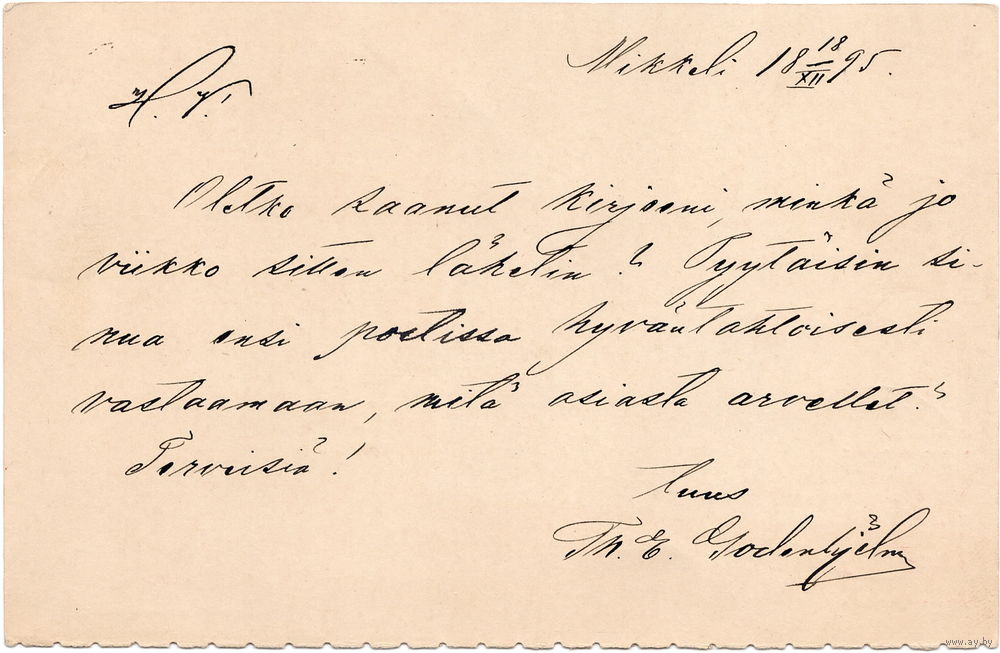 Mikkeli 18 18/XII 95.
H. V.!
Oletko saanut kirjeeni, minkä jo
viikko sitten lähetin? Pyytäisin si-
nua ensi postissa hyväntahtoisesti
vastaamaan, mitä asiasta arvellet.
Terveisiä!
tuus
Th. E. Godenhjelm
www.ay.by